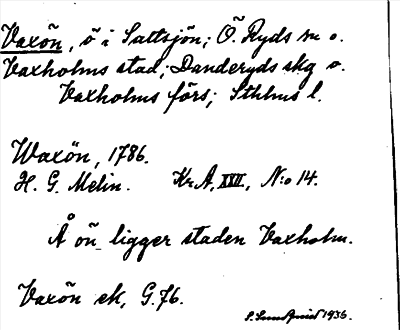 Vaxön, ö i Saltsjön; Ö. Ryds sn o.
Vaxholms stad; Danderyds skg o.
Vaxholms förs; Sthlms l.
Waxön, 1786.
H. G. Melin. Kr.A, XXII, N:o 14.
Å ön ligger staden Vaxholm.
Vaxön ek, G.76.
S. Sundqvist 1936.